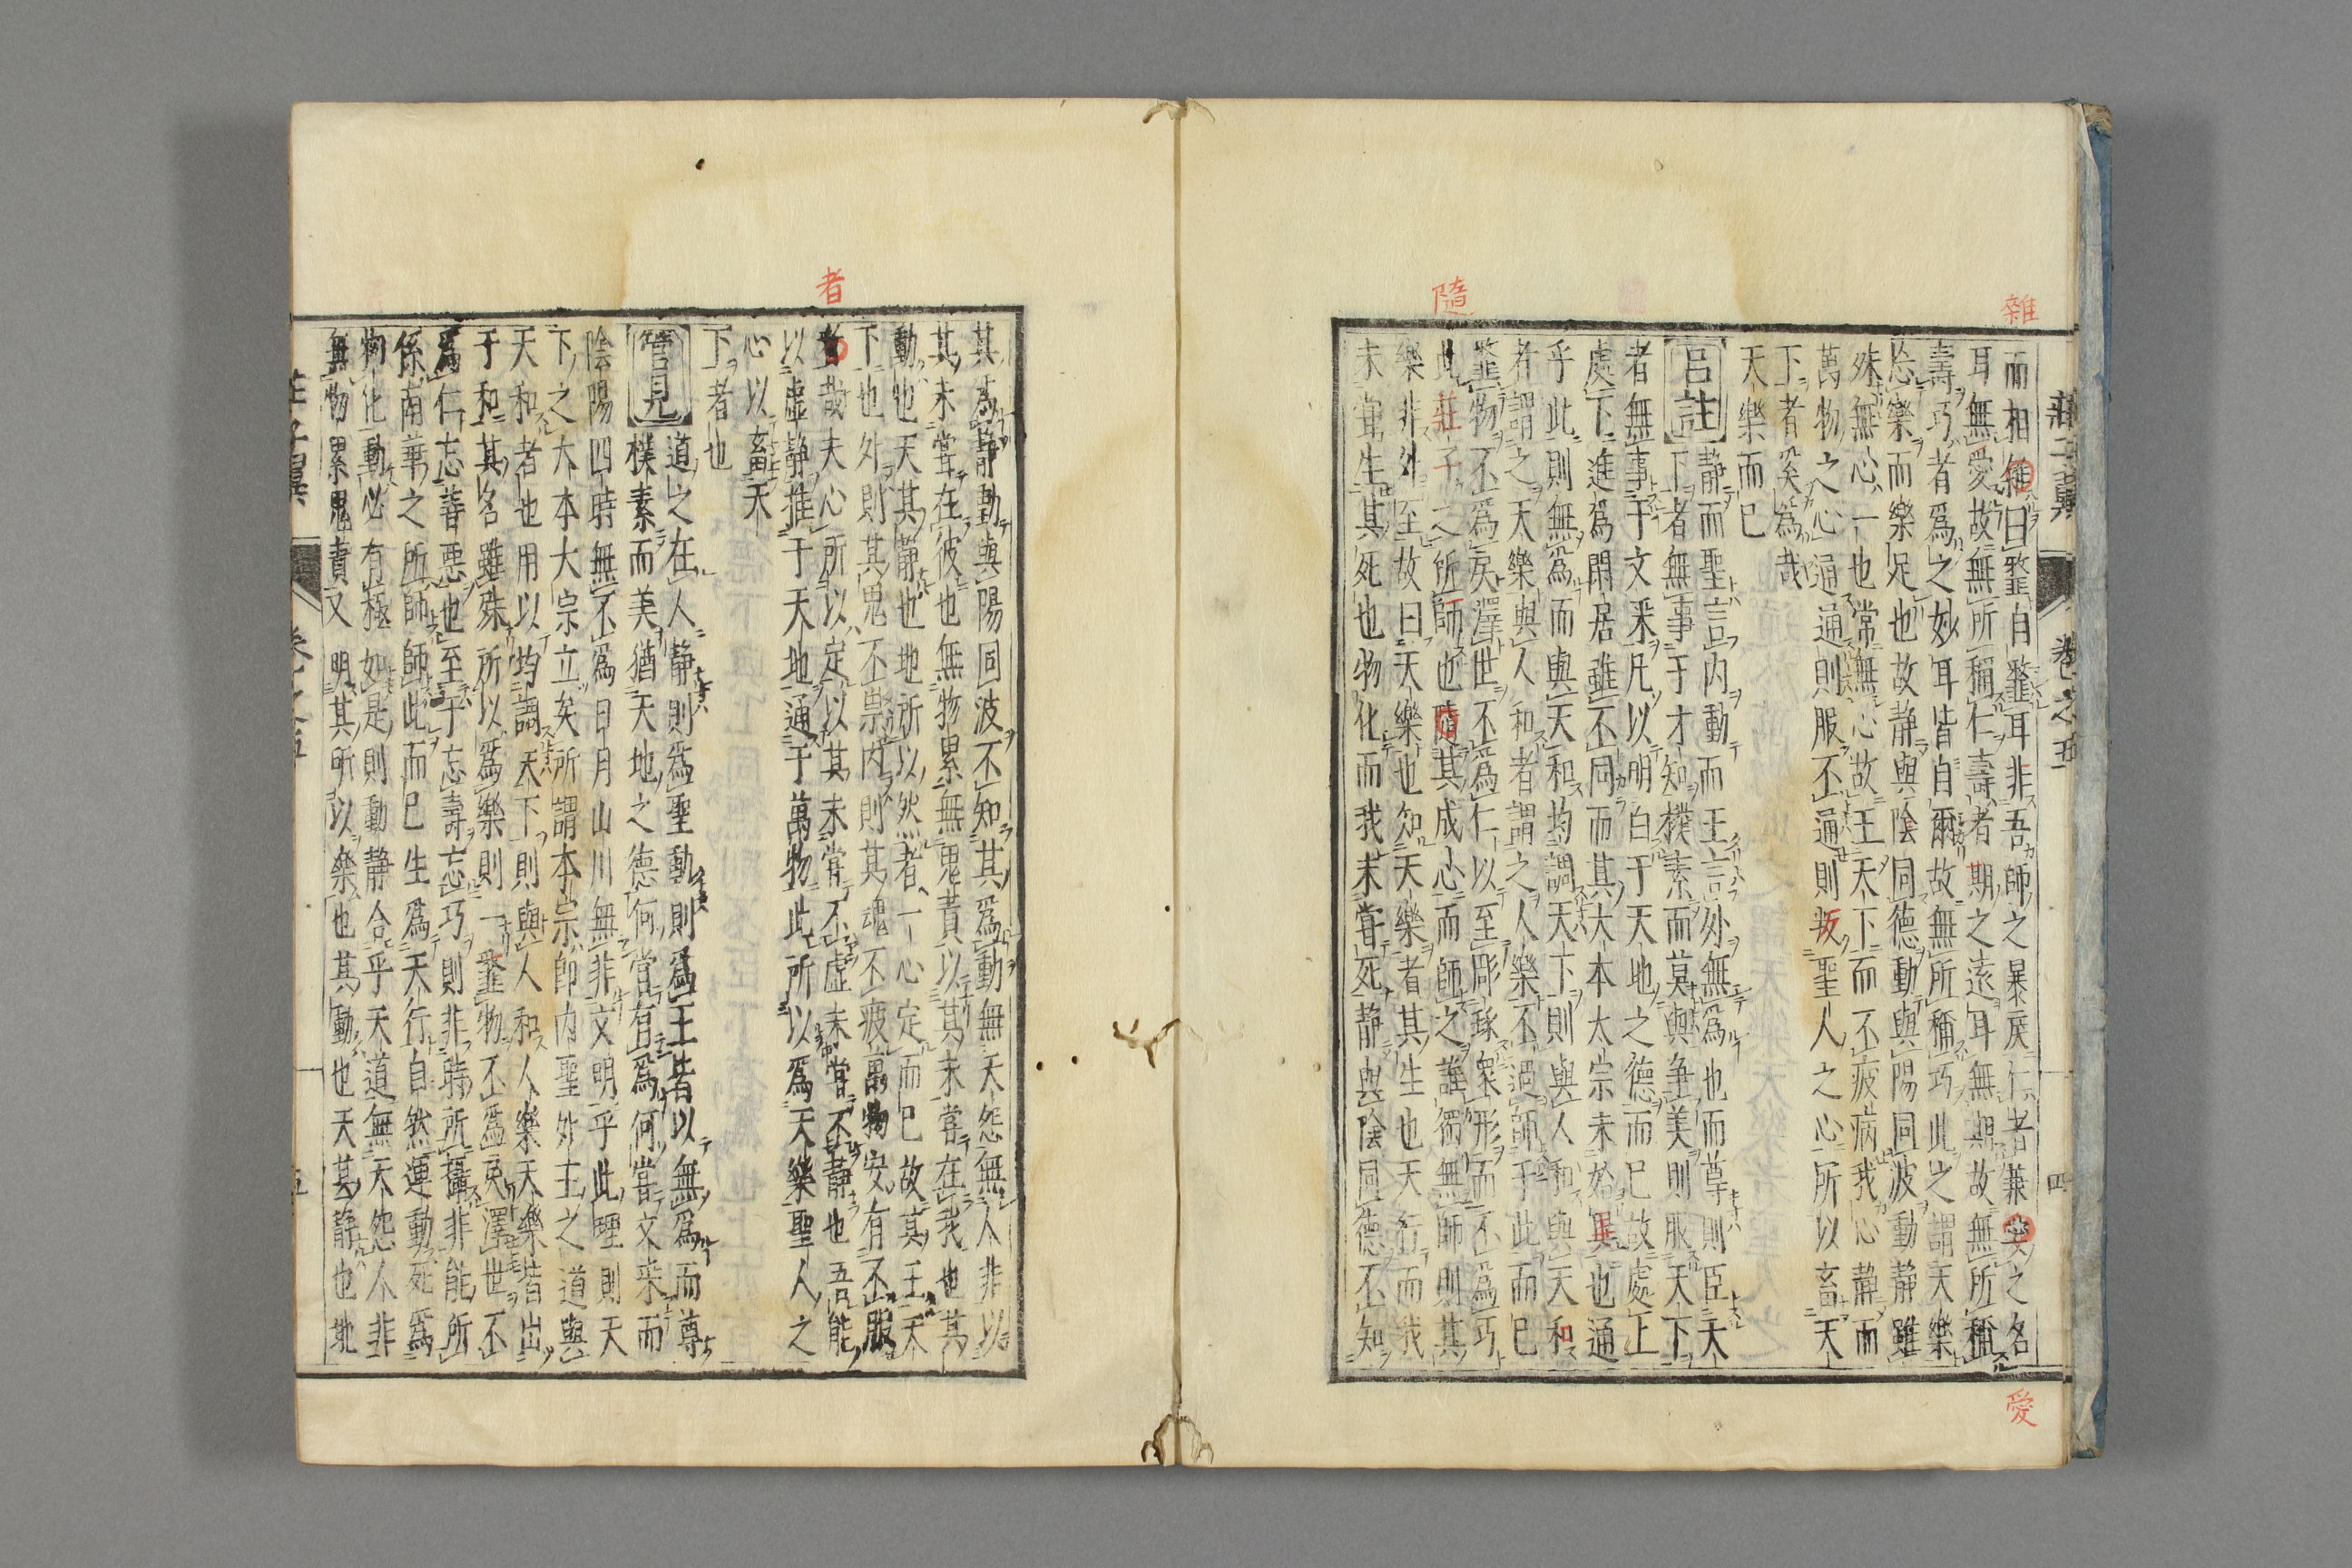 雜
而相雜曰䪠自䪠耳非吾師之暴戾仁者兼愛之名
愛
耳無愛故無所稱仁壽者期之遠耳無期故無所稱
壽巧者爲之妙耳皆自爾故無所稱巧此之謂天樂
忘樂而樂足也故静與陰同德動與陽同波動静雖
殊無心一也常無心故王天下而不疲病我心静而
萬物之心通通則服不通則叛聖人之心所以畜天
下者奚爲哉
天樂而已
呂註 静而聖言内動而王言外無爲也而尊則臣天
下者無事于才知樸素而莫與争美則服天下
者無事于文釆凡以明白于天地之德而已故處上
處下進爲閒居雖不同而其大本大宗未始異也通
乎此則無爲而與天和均調天下則與人和與天和
者謂之天樂與人和者謂之人樂不過師于此而已
䪠物不爲戾澤世不爲仁以至彫琢衆形而不爲巧
隨
此莊子之所師也隨其成心而師之誰獨無師則其
樂非外至故曰天樂也知天樂者其生也天行而我
未嘗生其死也物化而我未嘗死静與陰同德不知
莊子翼 卷之五 四
其爲静動與陽同波不知其爲動無天怨無人非以
其未嘗在彼也無物累無鬼責以其未嘗在我也其
動也天其静也地所以然者一心定而已故其王天
下也外則其鬼不祟内則其魂不疲萬物安有不服
者
者哉夫心所以定以其未嘗不虚未嘗不静也吾能
以虚静推于天地通于萬物此所以爲天樂聖人之
心以畜天
下者也
管見 道之在人静則爲聖動則爲王皆以無爲而尊
樸素而美猶天地之德何嘗有爲何嘗文釆而
陰陽四時無不爲日月山川無非文明乎此理則天
下之大本大宗立矣所謂本宗即内聖外王之道與
天和者也用以均調天下則與人和人樂天樂皆出
于和其名雖殊所以爲樂則一䪠物不爲戾澤世不
爲仁忘善惡也至于忘壽忘巧則非時所攝非能所
係南華之所師師此而已生爲天行自然運動死爲
物化動必有極如是則動静合乎天道無天怨人非
無物累鬼責又明其所以樂也其動也天其静也地
莊子翼 卷之五 五